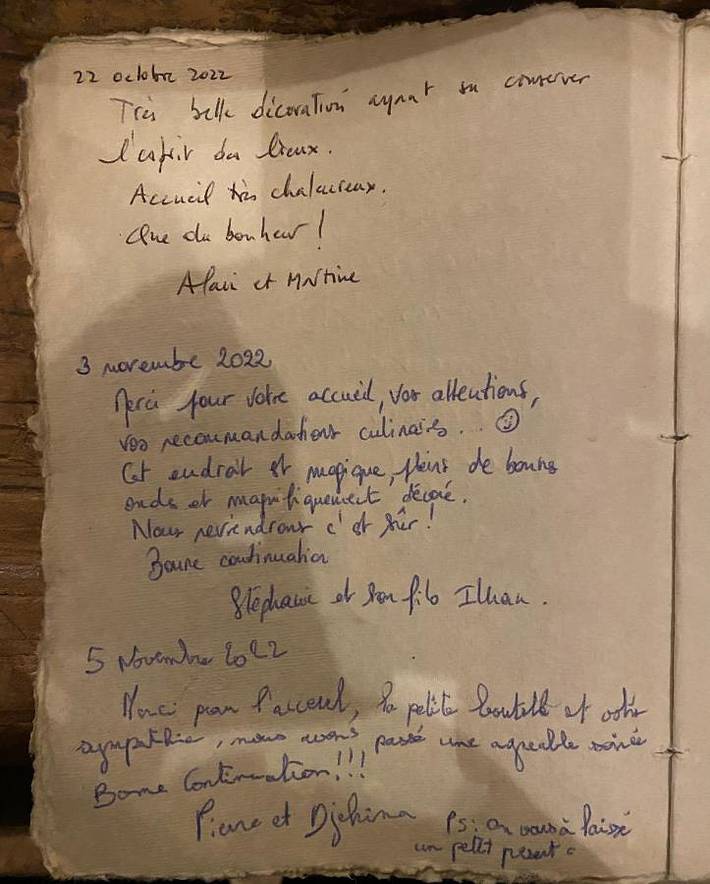 22 octobre 2022
Très belle décoration ayant su conserver
l'esprit des lieux.
Accueil très chaleureux.
Que du bonheur !
Alain et Martine
3 novembre 2022
Merci pour votre accueil, vos attentions,
vos recommandations culinaires... ☺
Cet endroit est magique, pleins de bonnes
ondes et magnifiquement décoré.
Nous reviendrons c'est sûr !
Bonne continuation
Stéphanie et son fils Ilhan.
5 Novembre 2022
Merci pour l'accueil, la petite bouteille et votre
sympathie, nous avons passé une agréable soirée
Bonne Continuation!!!
Pierre et Djehina
Ps: on vous à laissé
un petit présent.